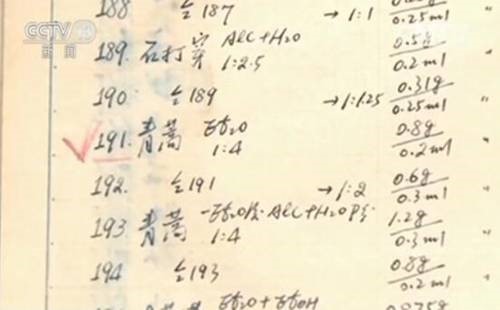 CCTV 13
新闻
188 仝187 →1:1 0.25ml
189. 石打穿 Alc+H2O 0.5g
1:2.5 0.2ml
190. 仝189 →1:1.25 0.31g
0.25ml "
191. 青蒿 0.8g
1:4 0.2ml "
192. 仝191 →1:2 0.6g
0.3ml "
193. 青蒿 Alc+H2O 1.2g
1:4 0.3ml "
194 仝193 0.8g
0.2ml "
0.875g